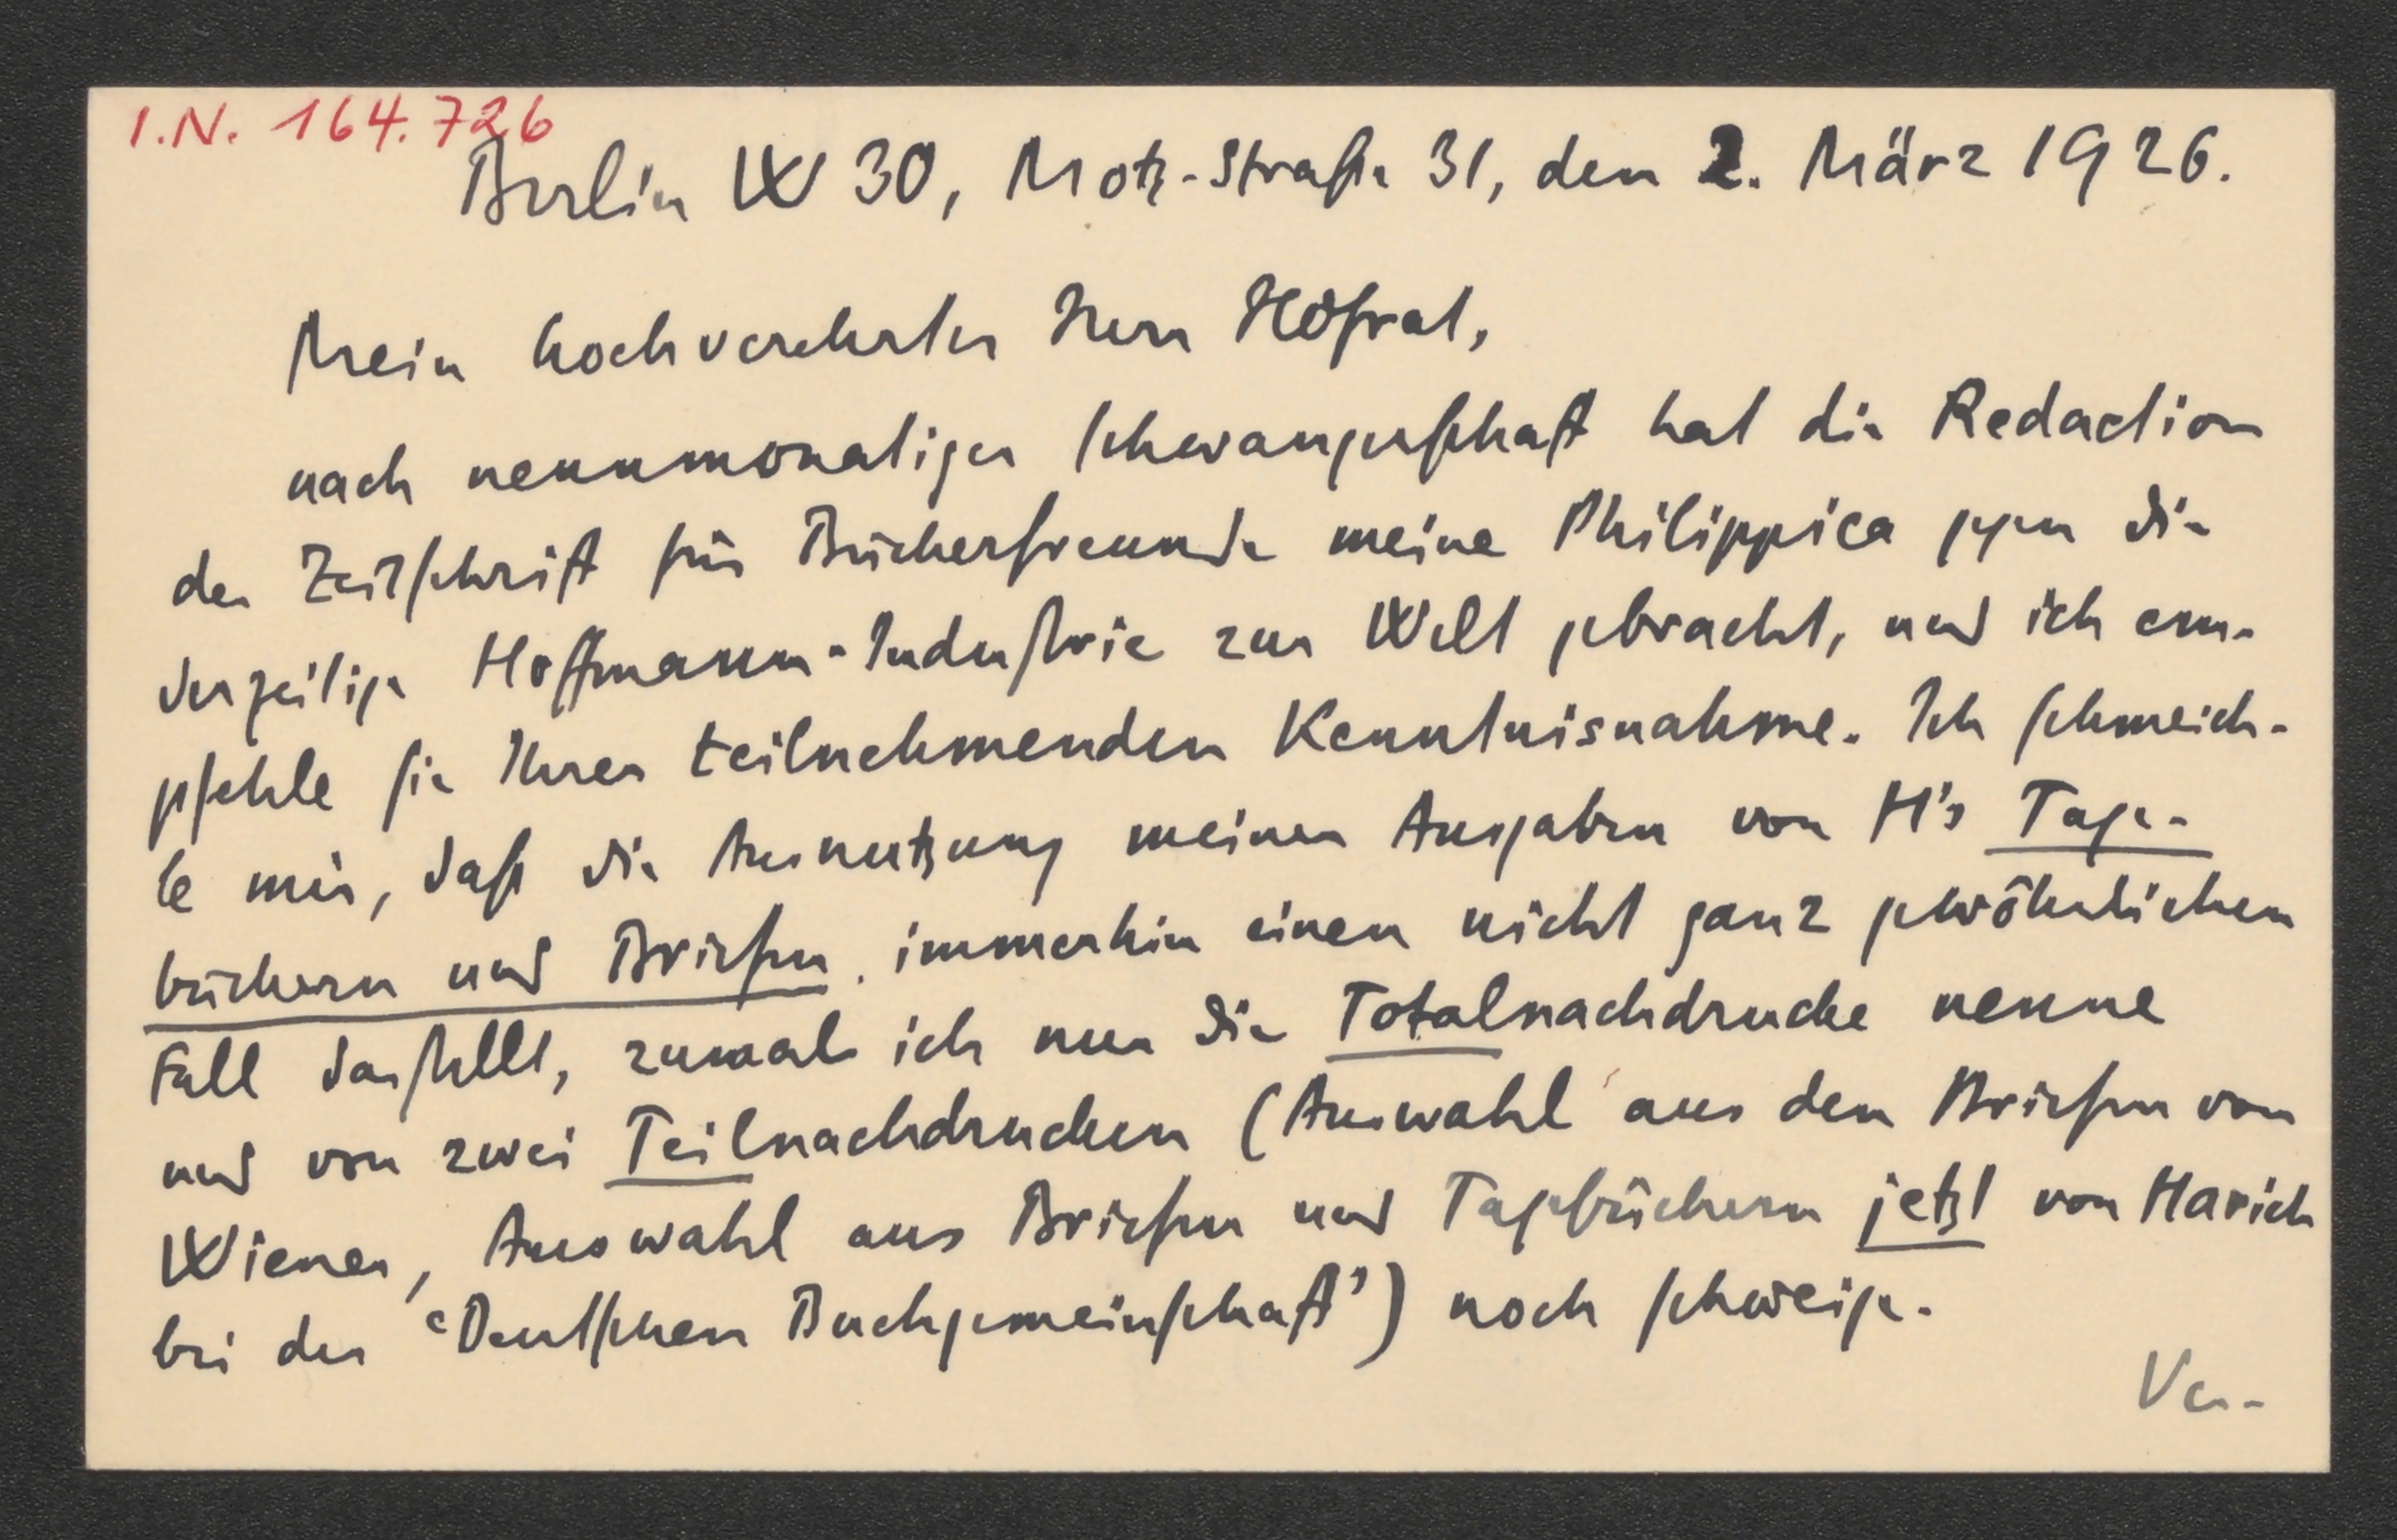 I.N. 164.726
Berlin W 30, Motz-Straße 31, den 2. März 1926.
Mein hochverehrter Herr Hofrat,
nach neunmonatiger Schwangerschaft hat die Redaction
der Zeitschrift für Bücherfreunde meine Philippica gegen die
derzeitige Hoffmann-Industrie zur Welt gebracht, und ich em-
pfehle sie Ihrer teilnehmenden Kenntnisnahme. Ich schmeich-
le mir, daß die Ausnutzung meiner Ausgaben von H's Tage-
büchern und Briefen immerhin einen nicht ganz gewöhnlichen
Fall darstellt, zumal ich nur die Totalnachdrucke nenne
und von zwei Teilnachdrucken (Auswahl aus den Briefen von
Wiener, Auswahl aus Briefen und Tagebüchern jetzt von Harich
bei der 'Deutschen Buchgemeinschaft') noch schweige.
Ver-